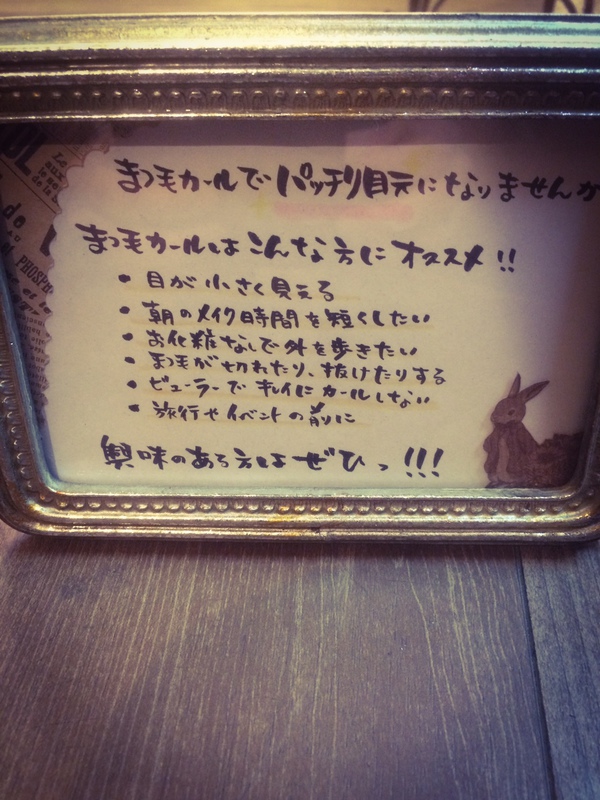 まつ毛カールでパッチリ目元になりませんか
まつ毛カールはこんな方にオススメ!!
• 目が小さく見える
• 朝のメイク時間を短くしたい
• お化粧なしで外を歩きたい
• まつ毛が切れたり、抜けたりする
• ビューラーでキレイにカールしない
• 旅行やイベントの前に
興味のある方はぜひっ!!!
de
PHOSP